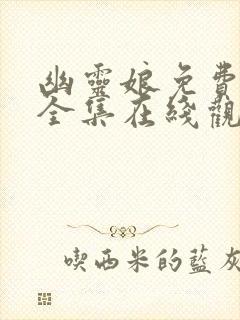 幽靈娘免費
全集在綫觀
喫西米的藍灰